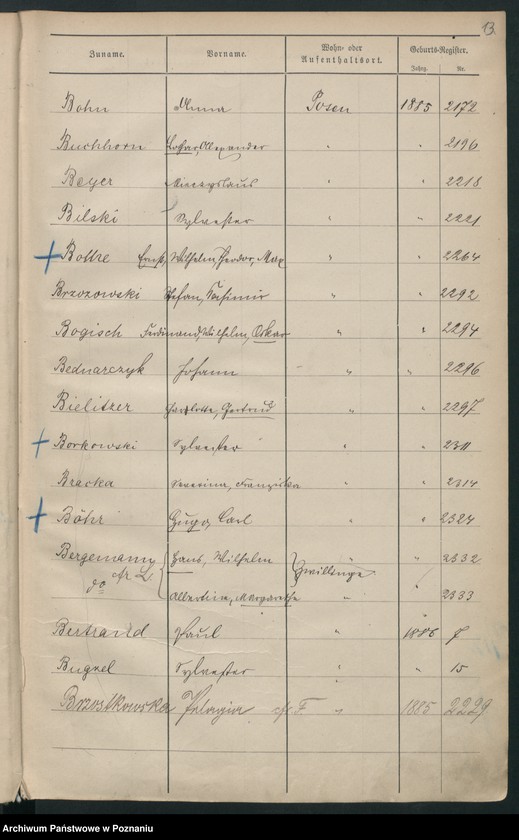 13.
Zuname. Vorname. Wohn- oder Aufenthaltsort. Geburts-Register.
Jahrg. Nr.
Bohn Anna Posen 1885 2172
Buchhorn Lothar, Alexander " " 2196
Beyer Mieczyslaus " " 2218
Bilski Sylvester " " 2221
+ Boltze Ernst, Wilhelm, Theodor, Max " " 2264
Brzozowski Stefan, Kasimir " " 2292
Bogisch Ferdinand, Wilhelm, Oskar " " 2294
Bednarczyk Johann " " 2296
Bielitzer Charlotte, Gertrud " " 2297
+ Borkowski Sylvester " " 2311
Bracka Severina, Franziska " " 2314
+ Böhr Hugo, Carl " " 2324
Bergemann Hans, Wilhelm " " 2332
do Zwillinge
Albertine, Margarethe " 2333
Bertrand Paul " 1886 7
Bugzel Sylvester " " 15
Brzostkowska Pelagia " 1885 2229.
Archiwum Państwowe w Poznaniu